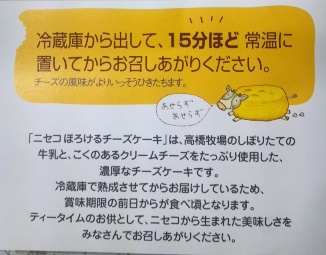 冷蔵庫から出して、15分ほど 常温に
置いてからお召しあがりください。
チーズの風味がよりいっそうひきたちます。
あせらず
あせらず
「ニセコ ほろけるチーズケーキ」は、高橋牧場のしぼりたての
牛乳と、こくのあるクリームチーズをたっぷり使用した、
濃厚なチーズケーキです。
冷蔵庫で熟成させてからお届けしているため、
賞味期限の前日からが食べ頃となります。
ティータイムのお供として、ニセコから生まれた美味しさを
みなさんでお召しあがりください。